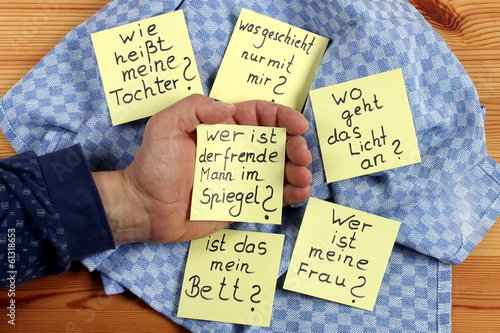 wie
heißt
meine
Tochter?
was geschieht
nur mit
mir?
wo
geht
das
Licht
an?
wer ist
der fremde
Mann im
Spiegel?
ist das
mein
Bett?
Wer
ist
meine
Frau?
Adobe Stock | #61318653